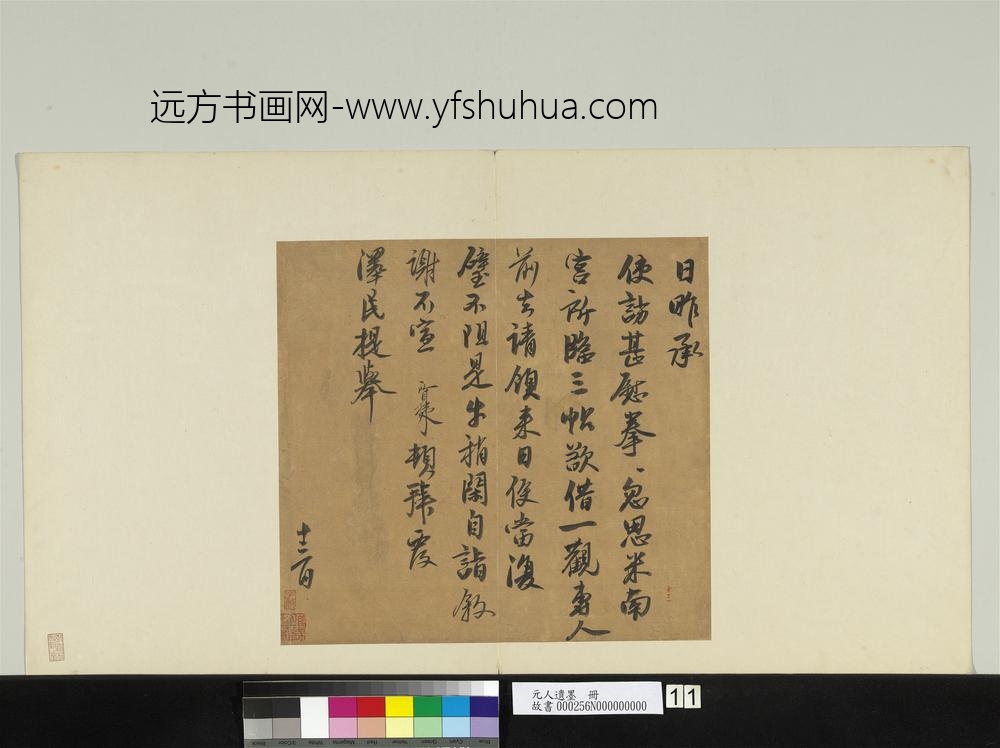 远方书画网-www.yfshuhua.com
日昨承
使訪甚慰拳、忽思米南
宮所臨三帖欲借一觀專人
前去請領来日便當復
璧不阻是幸稍閑自詣敘
謝不宣 頓拜覆
澤民提舉
十二日
元人遺墨 冊
故書 000256N000000000
11